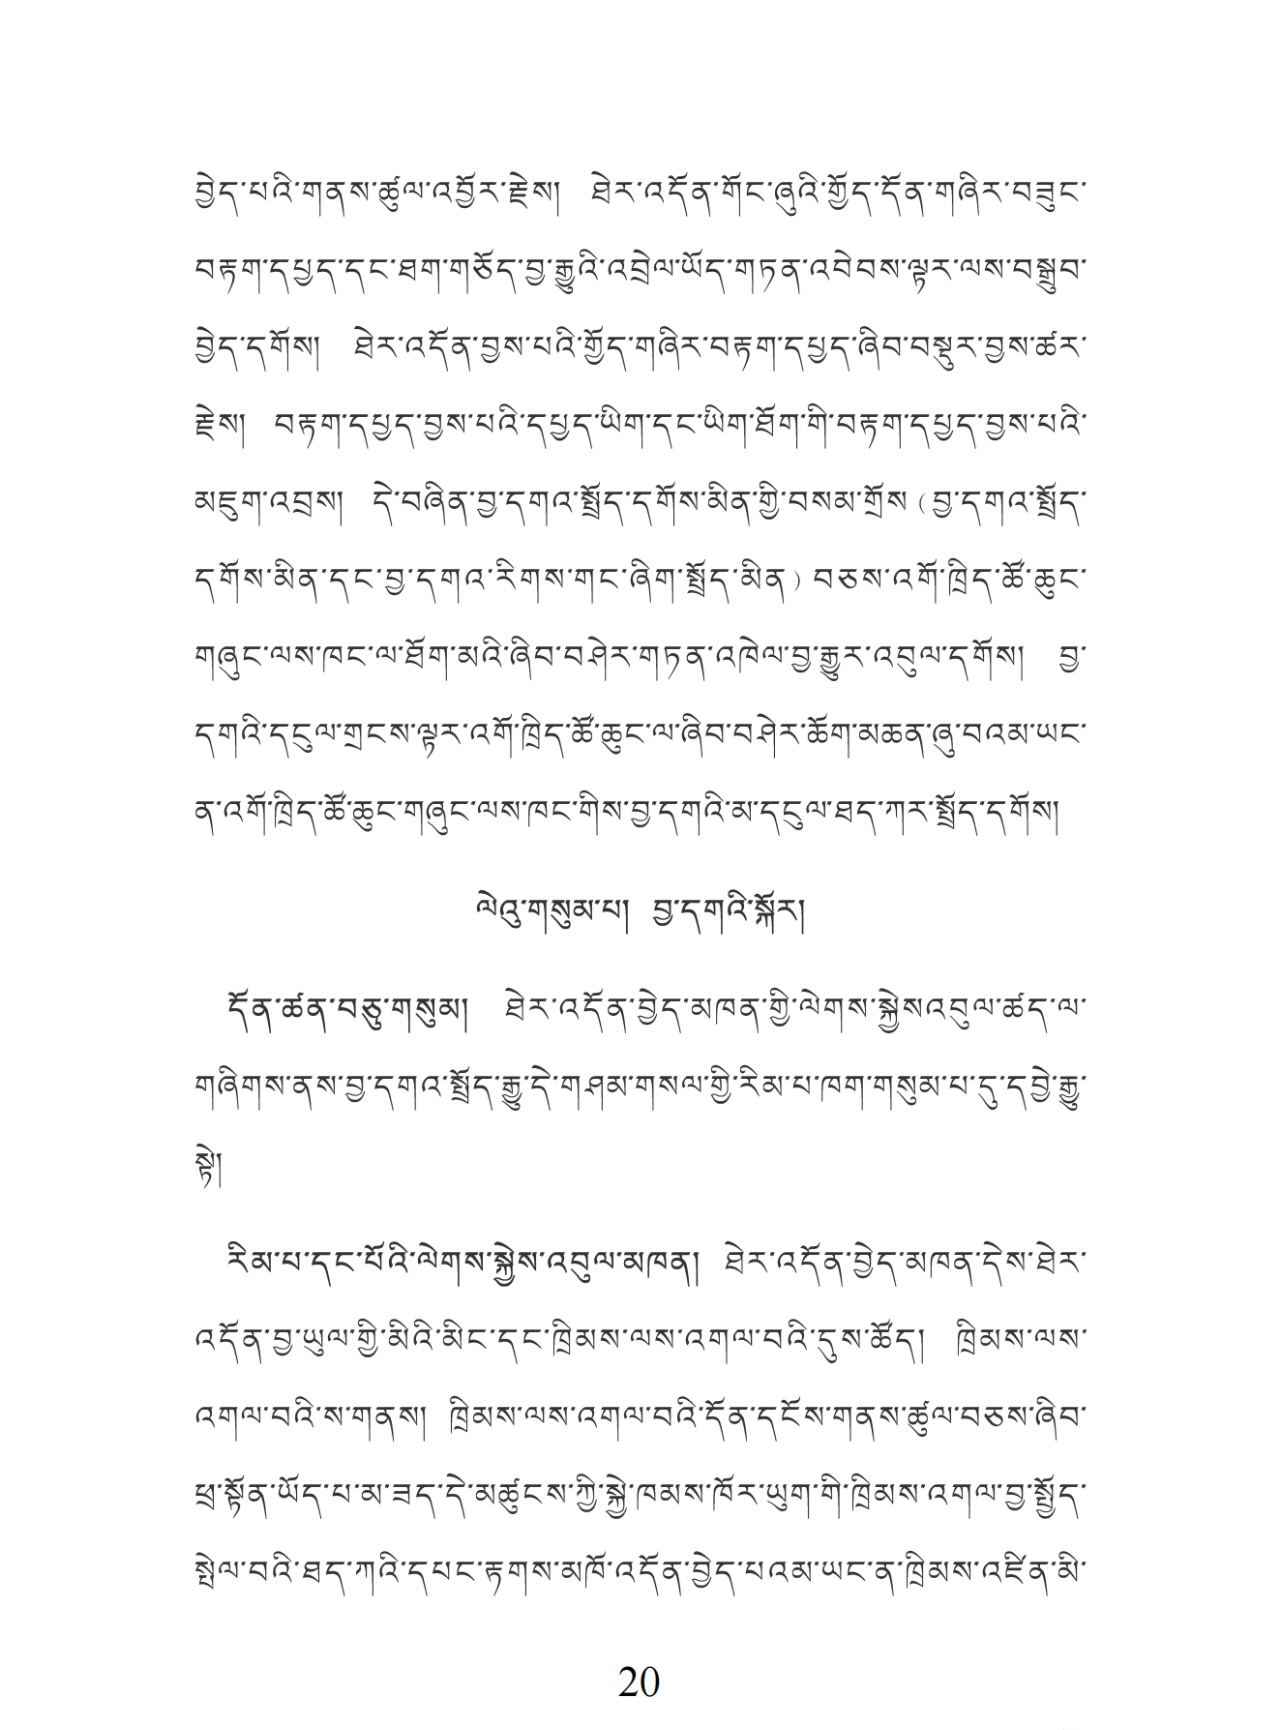 བྱེད་པའི་གནས་ཚུལ་འབྱོར་རྗེས།  ཐེར་འདོན་གོང་ཞུའི་གྱོད་དོན་གཞིར་བཟུང་
བརྟག་དཔྱད་དང་ཐག་གཅོད་བྱ་རྒྱུའི་འབྲེལ་ཡོད་གཏན་འབེབས་ལྟར་ལས་བསྒྲུབ་
བྱེད་དགོས།  ཐེར་འདོན་བྱས་པའི་གྱོད་གཞིར་བརྟག་དཔྱད་ཞིབ་བསྡུར་བྱས་ཚར་
རྗེས།  བརྟག་དཔྱད་བྱས་པའི་དཔྱད་ཡིག་དང་ཡིག་ཐོག་གི་བརྟག་དཔྱད་བྱས་པའི་
མཇུག་འབྲས།  དེ་བཞིན་བྱ་དགའ་སྤྲོད་དགོས་མིན་གྱི་བསམ་གྲོས（བྱ་དགའ་སྤྲོད་
དགོས་མིན་དང་བྱ་དགའ་རིགས་གང་ཞིག་སྤྲོད་མིན）བཅས་འགོ་ཁྲིད་ཚོ་ཆུང་
གཞུང་ལས་ཁང་ལ་ཐོག་མའི་ཞིབ་བཤེར་གཏན་འཁེལ་བྱ་རྒྱུར་འབུལ་དགོས།  བྱ་
དགའི་དངུལ་གྲངས་ལྟར་འགོ་ཁྲིད་ཚོ་ཆུང་ལ་ཞིབ་བཤེར་ཆོག་མཆན་ཞུ་བའམ་ཡང་
ན་འགོ་ཁྲིད་ཚོ་ཆུང་གཞུང་ལས་ཁང་གིས་བྱ་དགའི་མ་དངུལ་ཐད་ཀར་སྤྲོད་དགོས།
ལེའུ་གསུམ་པ།  བྱ་དགའི་སྐོར།
དོན་ཚན་བཅུ་གསུམ།  ཐེར་འདོན་བྱེད་མཁན་གྱི་ལེགས་སྐྱེས་འབུལ་ཚད་ལ་
གཞིགས་ནས་བྱ་དགའ་སྤྲོད་རྒྱུ་དེ་གཤམ་གསལ་གྱི་རིམ་པ་ཁག་གསུམ་པ་དུ་དབྱེ་རྒྱུ་
སྟེ།
རིམ་པ་དང་པོའི་ལེགས་སྐྱེས་འབུལ་མཁན།  ཐེར་འདོན་བྱེད་མཁན་དེས་ཐེར་
འདོན་བྱ་ཡུལ་གྱི་མིའི་མིང་དང་ཁྲིམས་ལས་འགལ་བའི་དུས་ཚོད།  ཁྲིམས་ལས་
འགལ་བའི་ས་གནས།  ཁྲིམས་ལས་འགལ་བའི་དོན་དངོས་གནས་ཚུལ་བཅས་ཞིབ་
ཕྲ་སྟོན་ཡོད་པ་མ་ཟད་དེ་མཚུངས་ཀྱི་སྐྱེ་ཁམས་ཁོར་ཡུག་གི་ཁྲིམས་འགལ་བྱ་སྤྱོད་
སྤེལ་བའི་ཐད་ཀའི་དཔང་རྟགས་མཁོ་འདོན་བྱེད་པའམ་ཡང་ན་ཁྲིམས་འཛིན་མི་
20